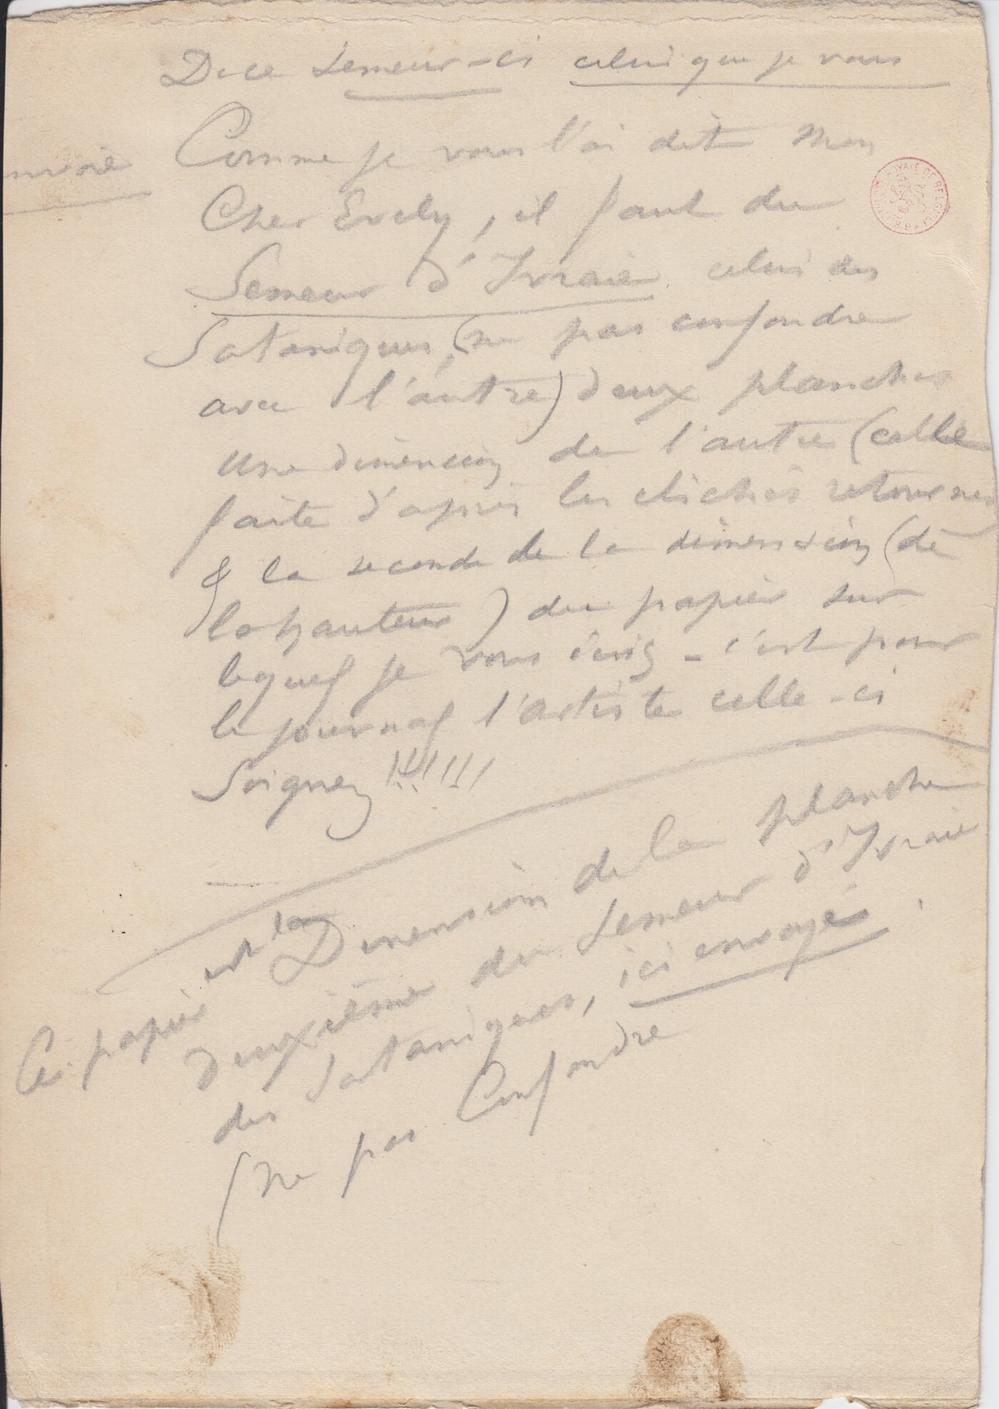 De ce Semeur-ci celui que je vous
envoie
Comme je vous l'ai dit Mon
Cher Evely, il faut du
Semeur d'Ivraie celui des
Sataniques, (ne pas confondre
avec l'autre) deux planches
une dimension de l'autre (celle
faite d'après les clichés retournés
& la seconde de la dimension (de
la hauteur) du papier sur
lequel je vous écris - c'est pour
le journal l'artiste celle-ci
Soignez !!!!!!
Ce papier est la Dimension de la planche
deuxième du Semeur d'Ivraie
des Sataniques, ici envoyé.
(ne pas Confondre